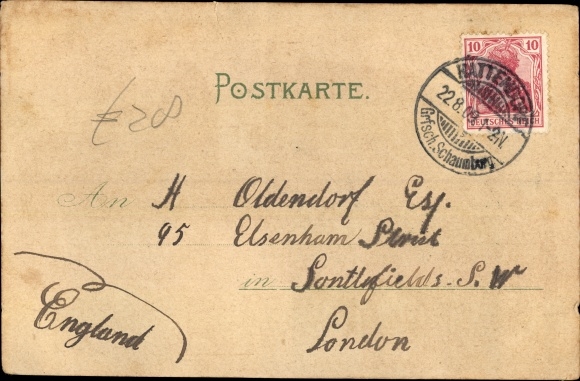 POSTKARTE.
10 10
DEUTSCHES REICH
22.8.
-2N.
Grfsch. Schaumburg
€28
An H Oldendorf Esq.
95 Elsenham Street
in Sontlyfields. S. W
London
England